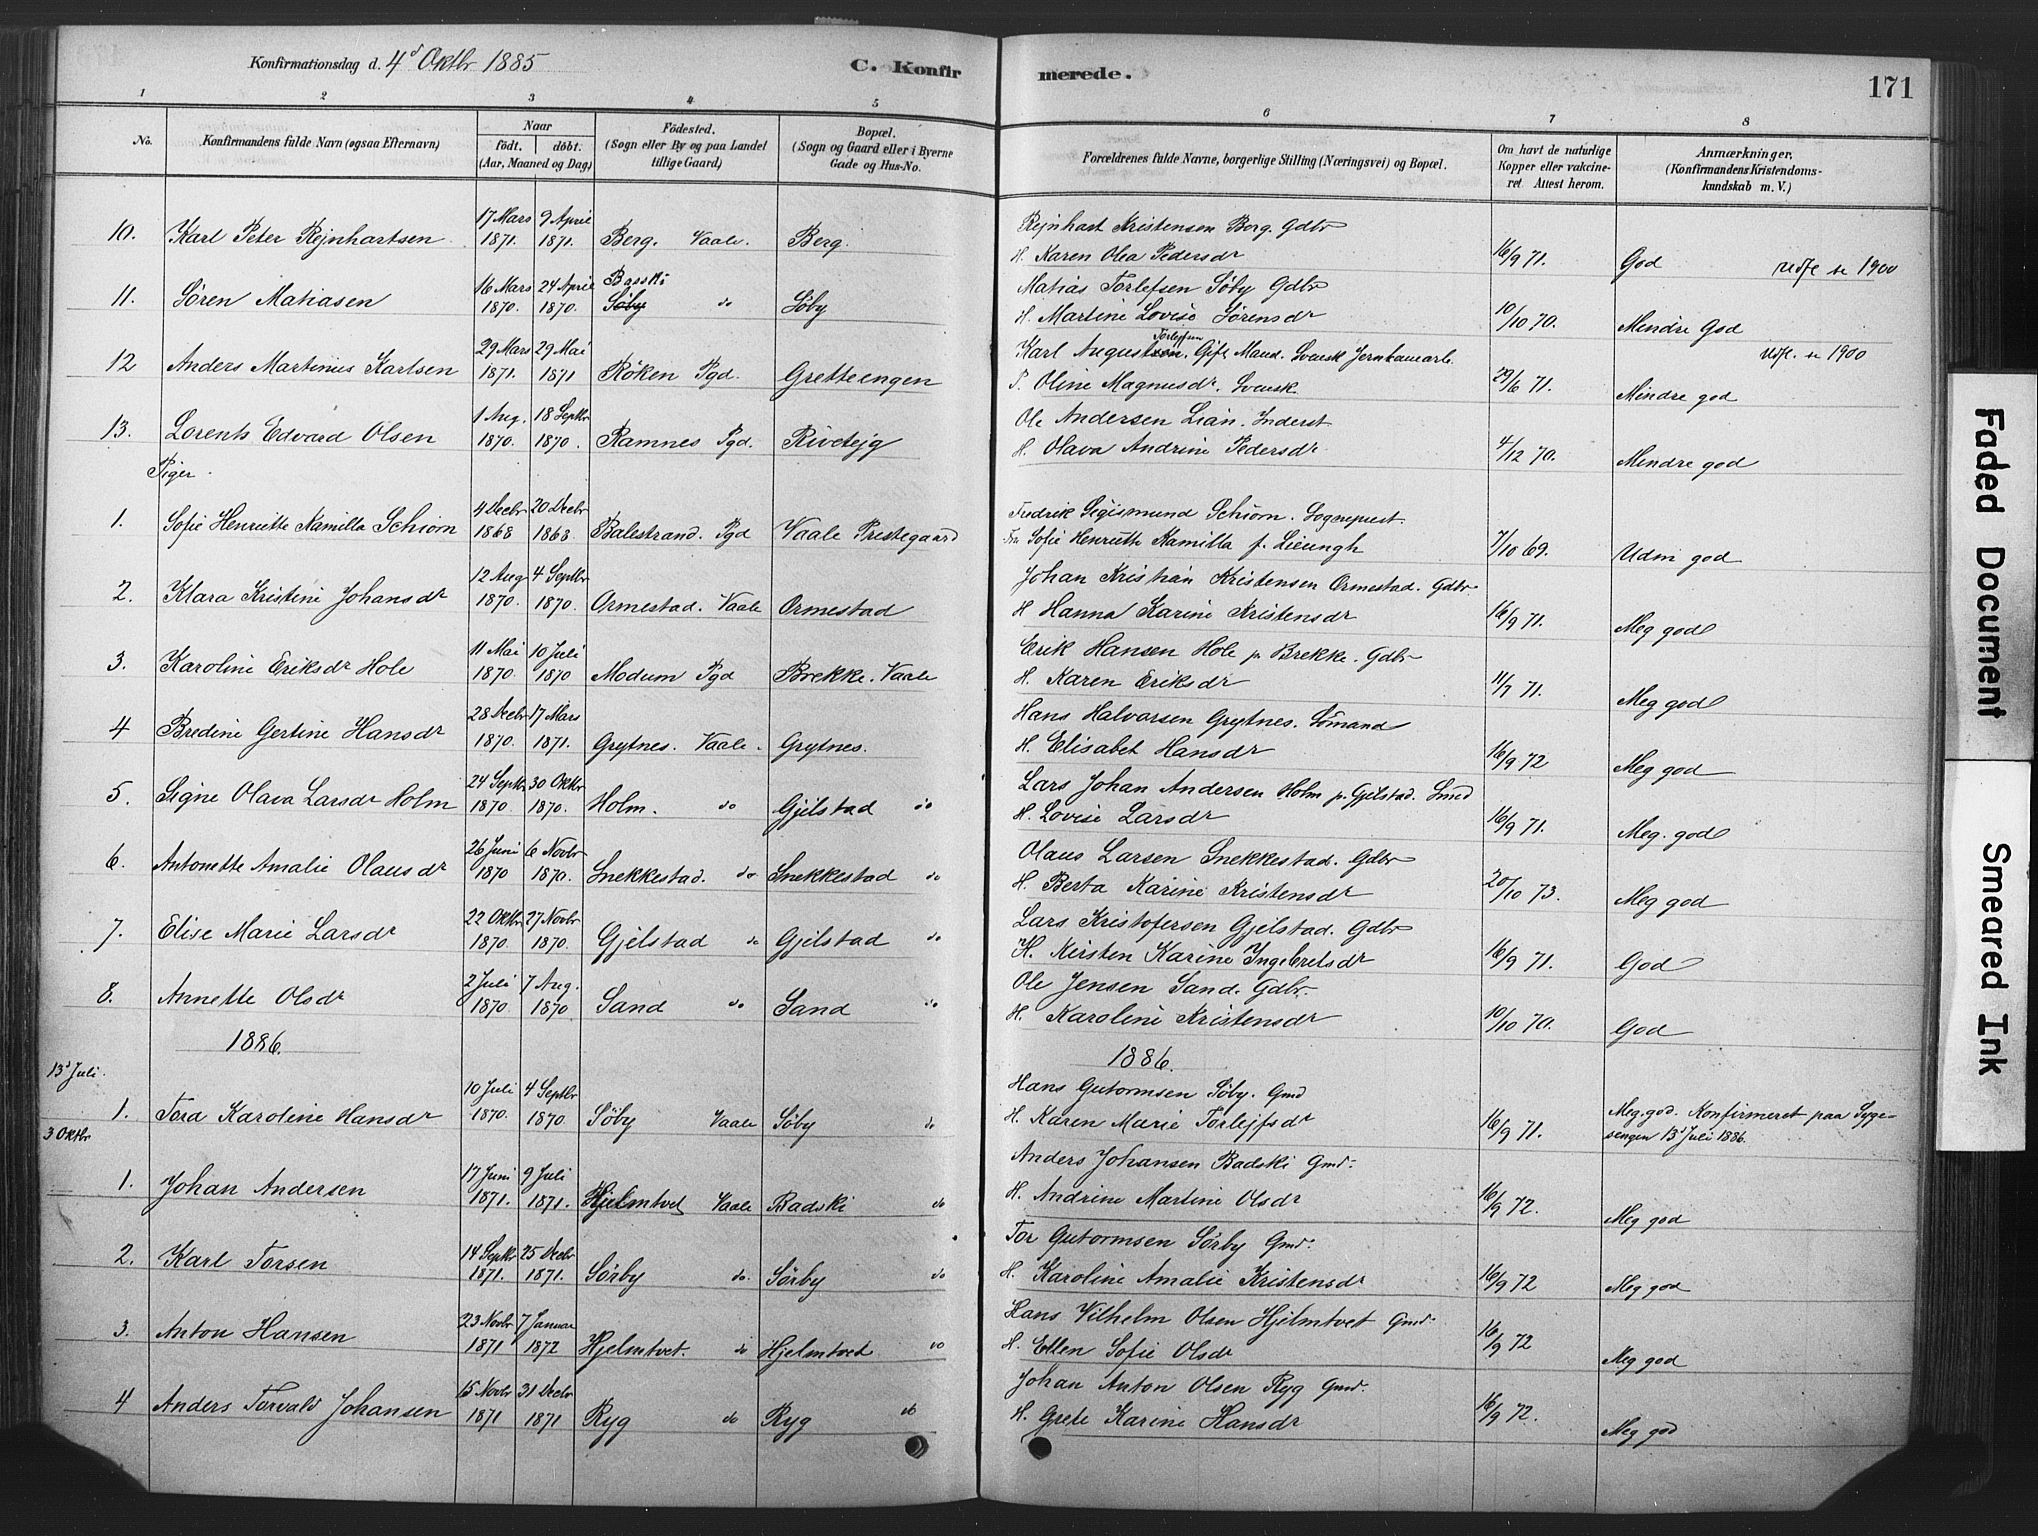 Konfirmationsdag d. 4d Oktbr 1885
C. Konfirmerede.
171
1 2 3 4 5 6 7 8
No.
Konfirmandens fulde Navn (ogsaa Efternavn)
Naar
födt. döbt.
(Aar, Maaned og Dag)
Födested.
(Sogn eller By og paa Landet
tillige Gaard)
Bopæl.
(Sogn og Gaard eller i Byerne
Gade og Hus-No.
Forældrenes fulde Navne, borgerlige Stilling (Næringsvei) og Bopæl.
Om havt de naturlige
Kopper eller vakcine-
ret. Attest herom.
Anmærkninger,
(Konfirmandens Kristendoms-
kundskab m. V.)
10. Karl Peter Rejnhartsen 17 Mars 1871. 9 April 1871. Berg. Vaale. Berg. Rejnhart Kristensen Berg. Gdbr
H. Karen Olea Pedersdr 16/9 71. God Udfl. se 1900
11. Søren Matiasen 16 Mars 1870. 24 April 1870. Basski Søby do Søby Matias Torlefsen Søby Gdbr
H. Martine Lovise Sørensdr 10/10 70. Mindre God
12 Anders Martinius Karlsen 29 Mars 1871. 29 Mai 1871 Röken Pgd. Gretteengen Karl August Torlefsen. Gift Mand. Svensk Jernbanearb. Udfl. se 1900
P. Oline Magnusdr. Svensk. 29/6 71. Mindre god
13. Lorents Edvard Olsen 1 Aug. 1870. 18 Septbr 1870. Ramnes Pgd. Rivetejg Ole Andersen Lian. Inderst
H. Olava Andrine Pedersdr 4/12 70. Mindre god
Piger.
1. Sofie Henriette Kamilla Schiørn 4 Decbr 1868 20 Decbr 1868. Balestrand. Pgd Vaale Prestegaard Fredrik Sigismund Schiørn. Sognepræst.
Fru Sofie Henriette Kamilla f. Lieungh 7/10 69. Udm god
2. Klara Kristine Johansdr 12 Aug 1870. 4 Septbr 1870. Ormestad. Vaale Ormestad Johan Kristian Kristensen Ormestad. Gdbr
H Hanna Karine Kristensdr 16/9 71. Meg god
3. Karoline Eriksdr Hole 11 Mai 1870. 10 Juli 1870 Modum Pgd Brekke. Vaale Erik Hansen Hole p. Brekke. Gdbr
H. Karen Eriksdr 11/7 71. Meg god
4 Bredine Gertine Hansdr 28 Decbr 1870. 17 Mars 1871. Grytnes. Vaale. Grytnes. Hans Halvorsen Grytnes. Sömand
H. Elisabet Hansdr 16/9 72 Meg god
5. Signe Olava Larsdr Holm 24 Septbr 1870. 30 Oktbr 1870. Holm. do Gjelstad do Lars Johan Andersen Holm p. Gjelstad. Smed
H. Lovise Larsdr 16/9 71. Meg. god
6. Antonette Amalie Olausdr 26 Juni 1870 6 Novbr 1870. Snekkestad. do Snekkestad do Olaus Larsen Snekkestad. Gdbr
H. Berta Karine Kristensdr 20/10 73. Meg god
7. Elise Marie Larsdr 22 Oktbr 1870. 27 Novbr 1870. Gjelstad do Gjelstad do Lars Kristofersen Gjelstad. Gdbr
H. Kirsten Karine Ingebretsdr 16/9 71. God
8. Annette Olsdr 2 Juli 1870 7 Aug. 1870 Sand do Sand do Ole Jensen Sand. Gdbr.
H. Karoline Kristensdr 10/10 70. God
1886. 1886.
13d Juli.
1. Tora Karoline Hansdr 10 Juli 1870. 4 Septbr 1870 Søby Vaale Søby do Hans Gutormsen Søby. Gmd
H. Karen Marie Torlejfsdr 16/9 71. Meg. god. Konfirmeret paa Syge-
sengen 13d Juli 1886.
3 Oktbr
1. Johan Andersen 17 Juni 1871. 9 Juli 1871. Hjelmtvet Vaale Badski do Anders Johansen Badski Gmd.
H. Andrine Martine Olsdr 16/9 72. Meg god
2. Karl Torsen 14 Septbr 1871. 25 Decbr 1871. Sörby do. Sörby do Tor Gutormsen Sörby Gmd.
H. Karoline Amalie Kristensdr 16/9 72 Meg god
3. Anton Hansen 23 Novbr 1871 7 Januar 1872 Hjelmtvet. do Hjelmtvet do Hans Vilhelm Olsen Hjelmtvet Gmd.
H. Ellen Sofie Olsdr 16/9 72 Meg god
4 Anders Torvald Johansen 15 Novbr 1871 31 Decbr 1871 Ryg do Ryg do Johan Anton Olsen Ryg Gmd.
H. Grete Karine Hansdr 16/9 72. Meg god
Faded Document
Smeared Ink